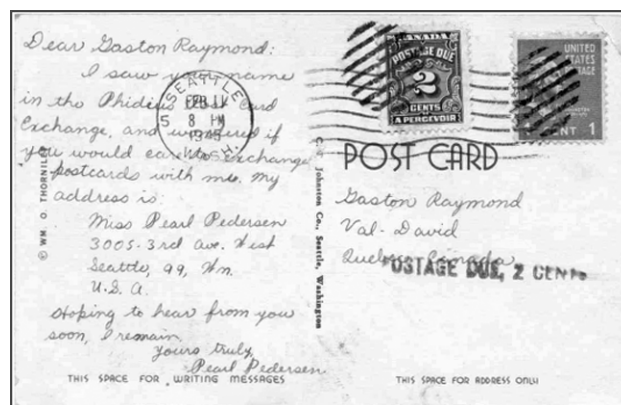 Dear Gaston Raymond:
I saw your name
in the Phideus Card
Exchange, and wondered if
you would care to exchange
postcards with me. My
address is:
Miss Pearl Pedersen
3005-3rd Ave. West
Seattle, 99, Wn.
U.S.A.
Hoping to hear from you
soon, I remain.
Yours truly,
Pearl Pedersen
THIS SPACE FOR WRITING MESSAGES
© WM. O. THORNILEY
SEATTLE
FEB 11
5 8 PM
WASH.
C. Johnston Co., Seattle, Washington
CANADA
POSTAGE DUE
2
CENTS
A PERCEVOIR
UNITED
STATES
POSTAGE
CENT 1
POST CARD
Gaston Raymond
Val-David
Quebec, Canada
POSTAGE DUE, 2 CENTS
THIS SPACE FOR ADDRESS ONLY